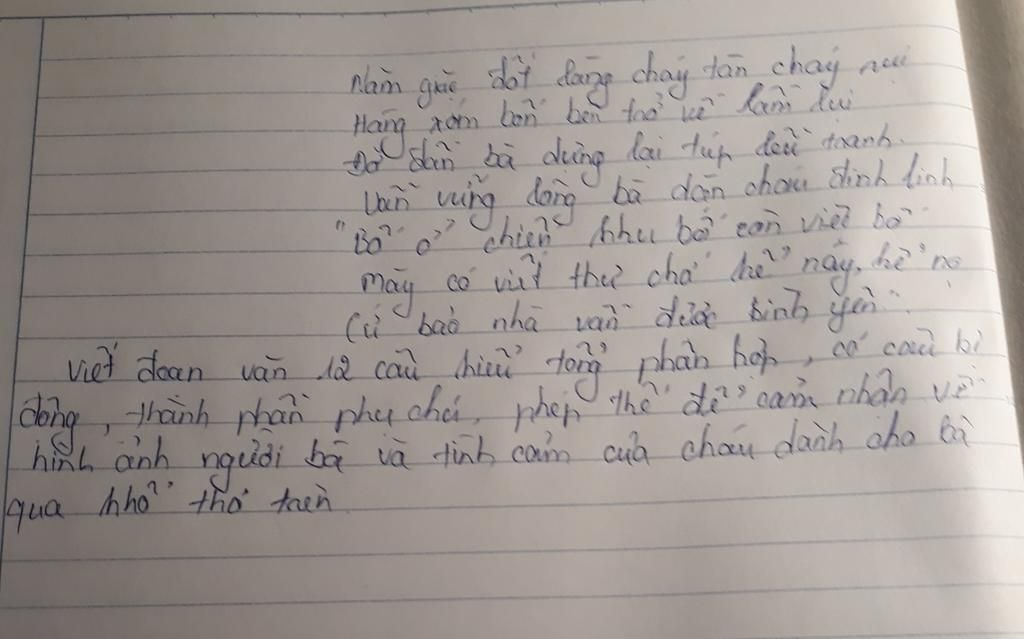 Năm giặc đốt làng cháy tàn cháy rụi
Hàng xóm bốn bên trở về lầm lụi
Đỡ đần bà dựng lại túp lều tranh.
Vẫn vững lòng bà dặn cháu đinh ninh
"Bố ở chiến khu bố còn việc bố
mày có viết thư chớ kể này, kể nọ
Cứ bảo nhà vẫn được bình yên".
Viết đoạn văn 12 câu kiểu tổng phân hợp, có câu bị
động, thành phần phụ chú, phép thế để cảm nhận về
hình ảnh người bà và tình cảm của cháu dành cho bà
qua khổ thơ trên